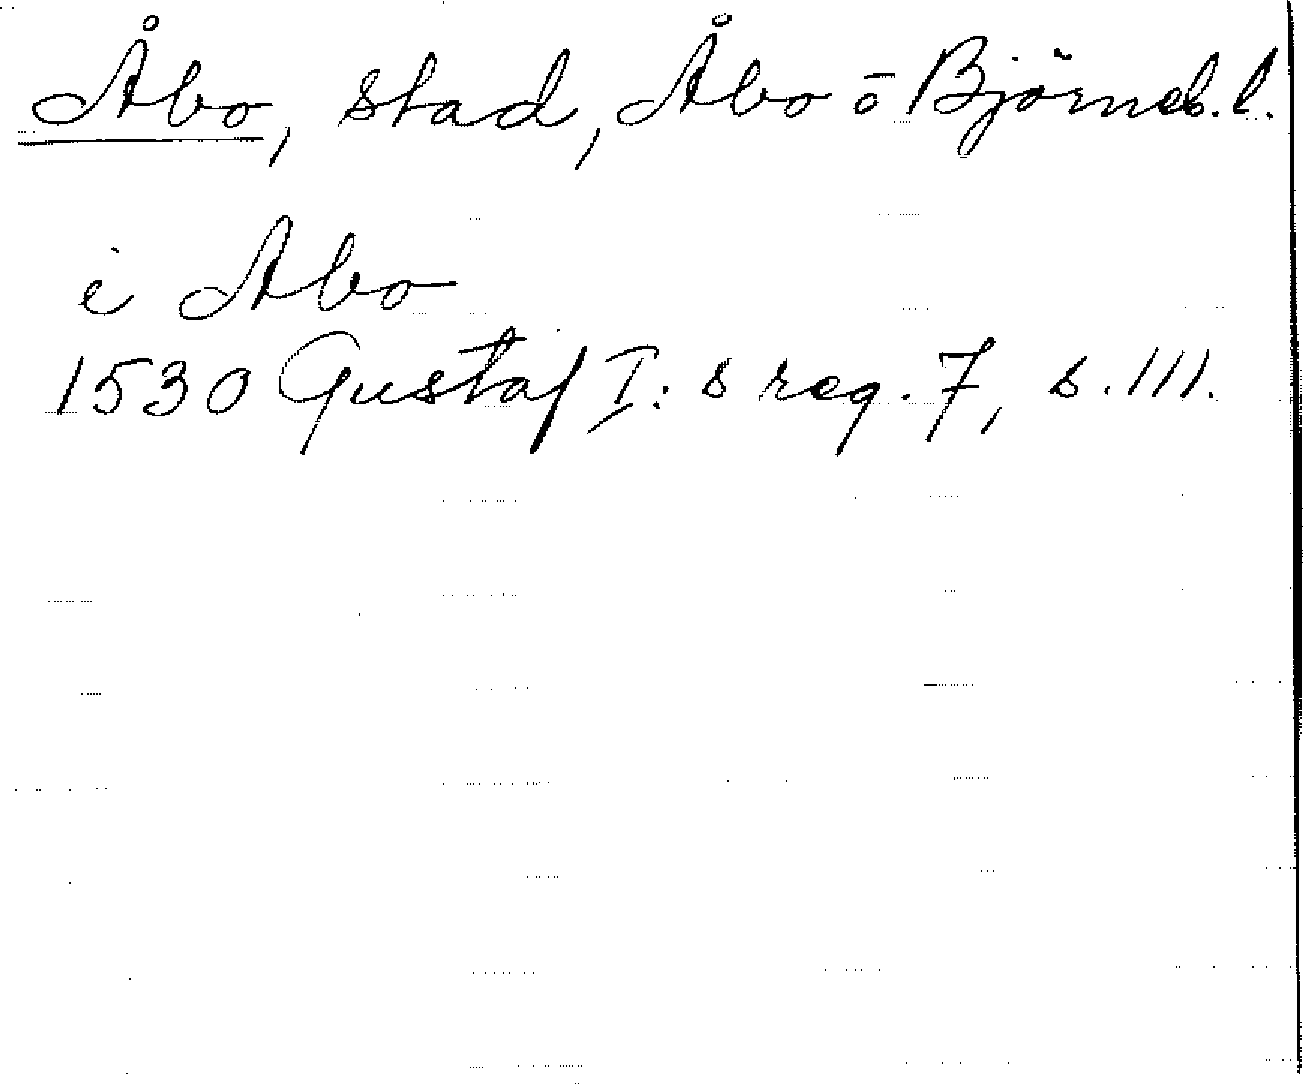 Åbo, stad, Åbo ō Björneb. l.
i Abo
1530 Gustaf I:s reg. 7, s. 111.